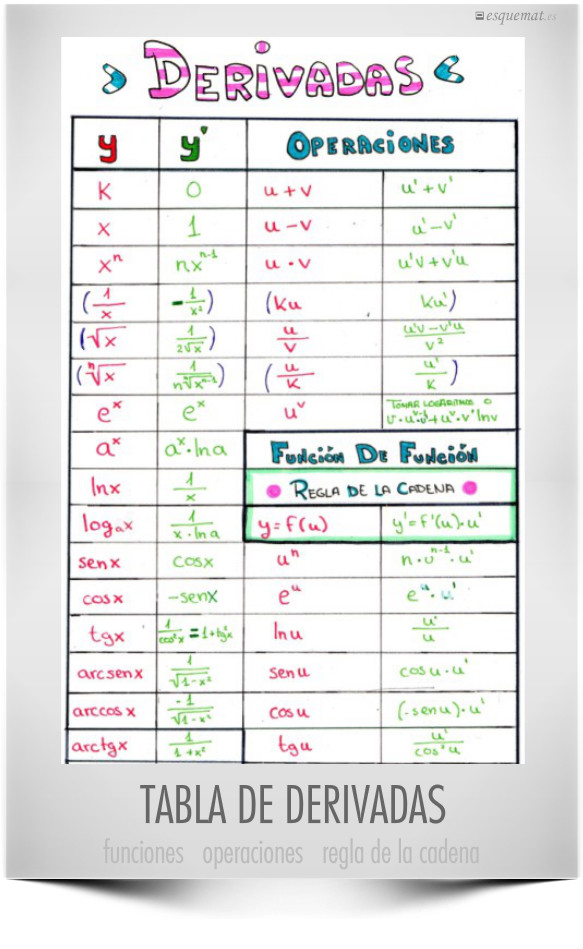 esquemat.es
DERIVADAS
y y' OPERACIONES
K 0 u+v u'+v'
x 1 u-v u'-v'
xⁿ nxⁿ⁻¹ u·v u'v+v'u
(1/x -1/x²) (Ku Ku')
(√x 1/2√x) u/v u'v-v'u/v²
(ⁿ√x 1/n ⁿ√xⁿ⁻¹) (u/K u'/K)
eˣ eˣ uᵛ TOMAR LOGARITMOS O
v·uᵛ⁻¹·u'+uᵛ·v'lnv
aˣ aˣ·lna FUNCIÓN DE FUNCIÓN
lnx 1/x REGLA DE LA CADENA
logₐx 1/x·lna y=f(u) y'=f'(u)·u'
senx cosx uⁿ n·uⁿ⁻¹·u'
cosx -senx eᵘ eᵘ·u'
tgx 1/cos²x=1+tg²x lnu u'/u
arcsenx 1/√1-x² senu cosu·u'
arccosx -1/√1-x² cosu (-senu)·u'
arctgx 1/1+x² tgu u'/cos²u
TABLA DE DERIVADAS
funciones operaciones regla de la cadena